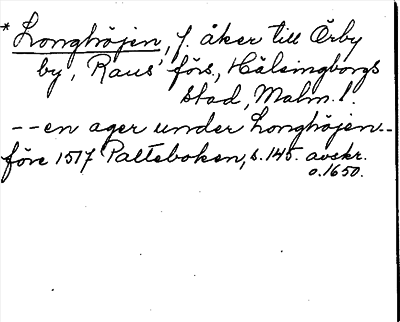 * Longhöjen, f. åker till Örby
by, Raus' förs., Hälsingborgs
stad, Malm. l.
--en ager under Longhöjen--
före 1517 Palteboken, s. 145. avskr.
o. 1650.